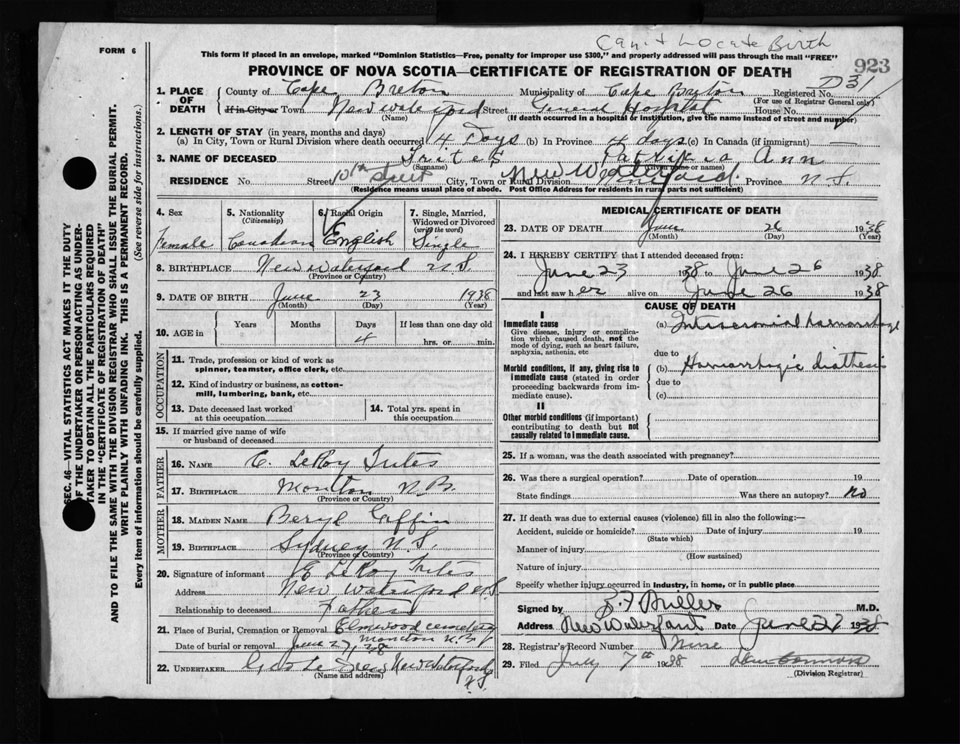 Can't Locate Birth
FORM 6
This form if placed in an envelope, marked "Dominion Statistics—Free, penalty for improper use $300," and properly addressed will pass through the mail "FREE"
923
PROVINCE OF NOVA SCOTIA—CERTIFICATE OF REGISTRATION OF DEATH
1. PLACE OF DEATH County of Cape Breton Municipality of Cape Breton Registered No.
(For use of Registrar General only)
If in City or Town New Waterford Street General Hospital House No.
(Name) (If death occurred in a hospital or institution, give the name instead of street and number)
2. LENGTH OF STAY (in years, months and days)
(a) In City, Town or Rural Division where death occurred 4 Days (b) In Province 4 days (c) In Canada (if immigrant) —
3. NAME OF DECEASED Trites Patricia Ann
(Surname) (Given name or names)
RESIDENCE No. Street 10th Street City, Town or Rural Division New Waterford Province N.S.
(Residence means usual place of abode. Post Office Address for residents in rural parts not sufficient)
4. Sex Female
5. Nationality (Citizenship) Canadian
6. Racial Origin English
7. Single, Married, Widowed or Divorced (write the word) Single
8. BIRTHPLACE New Waterford N.S.
(Province or Country)
9. DATE OF BIRTH June 23 1938
(Month) (Day) (Year)
10. AGE in Years Months Days If less than one day old
4 hrs. or min.
OCCUPATION
11. Trade, profession or kind of work as spinner, teamster, office clerk, etc.
12. Kind of industry or business, as cotton-mill, lumbering, bank, etc.
13. Date deceased last worked at this occupation
14. Total yrs. spent in this occupation
15. If married give name of wife or husband of deceased
FATHER
16. NAME E. LeRoy Trites
17. BIRTHPLACE Moncton N.B.
(Province or Country)
MOTHER
18. MAIDEN NAME Beryl
19. BIRTHPLACE Sydney N.S.
(Province or Country)
20. Signature of informant E LeRoy Trites
Address New Waterford N.S.
Relationship to deceased Father
21. Place of Burial, Cremation or Removal Elmwood cemetery
Moncton N.B.
Date of burial or removal June 27/38
22. UNDERTAKER New Waterford
(Name and address) N.S.
MEDICAL CERTIFICATE OF DEATH
23. DATE OF DEATH June 26 1938
(Month) (Day) (Year)
24. I HEREBY CERTIFY that I attended deceased from:
June 23 1938 to June 26 1938
and last saw her alive on June 26 1938
CAUSE OF DEATH
I
Immediate cause
Give disease, injury or complication which caused death, not the mode of dying, such as heart failure, asphyxia, asthenia, etc
(a) Intracranial haemorrhage
due to
Morbid conditions, if any, giving rise to immediate cause (stated in order proceeding backwards from immediate).
(b) Hemorrhagic diathesis
due to
(c)
II
Other morbid conditions (if important) contributing to death but not causally related to immediate cause.
25. If a woman, was the death associated with pregnancy?
26. Was there a surgical operation? Date of operation 19
State findings Was there an autopsy? no
27. If death was due to external causes (violence) fill in also the following:—
Accident, suicide or homicide? Date of injury 19
(State which)
Manner of injury
(How sustained)
Nature of injury
Specify whether injury occurred in industry, in home, or in public place
Signed by Miller M.D.
Address New Waterford Date June 27 1938
28. Registrar's Record Number Nine
29. Filed July 7th 1938
(Division Registrar)
SEC. 46—VITAL STATISTICS ACT MAKES IT THE DUTY
OF THE UNDERTAKER OR PERSON ACTING AS UNDER-
TAKER TO OBTAIN ALL THE PARTICULARS REQUIRED
IN THE "CERTIFICATE OF REGISTRATION OF DEATH"
AND TO FILE THE SAME WITH THE DIVISION REGISTRAR WHO SHALL ISSUE THE BURIAL PERMIT.
WRITE PLAINLY WITH UNFADING INK. THIS IS A PERMANENT RECORD.
Every item of information should be carefully supplied. (See reverse side for instructions.)